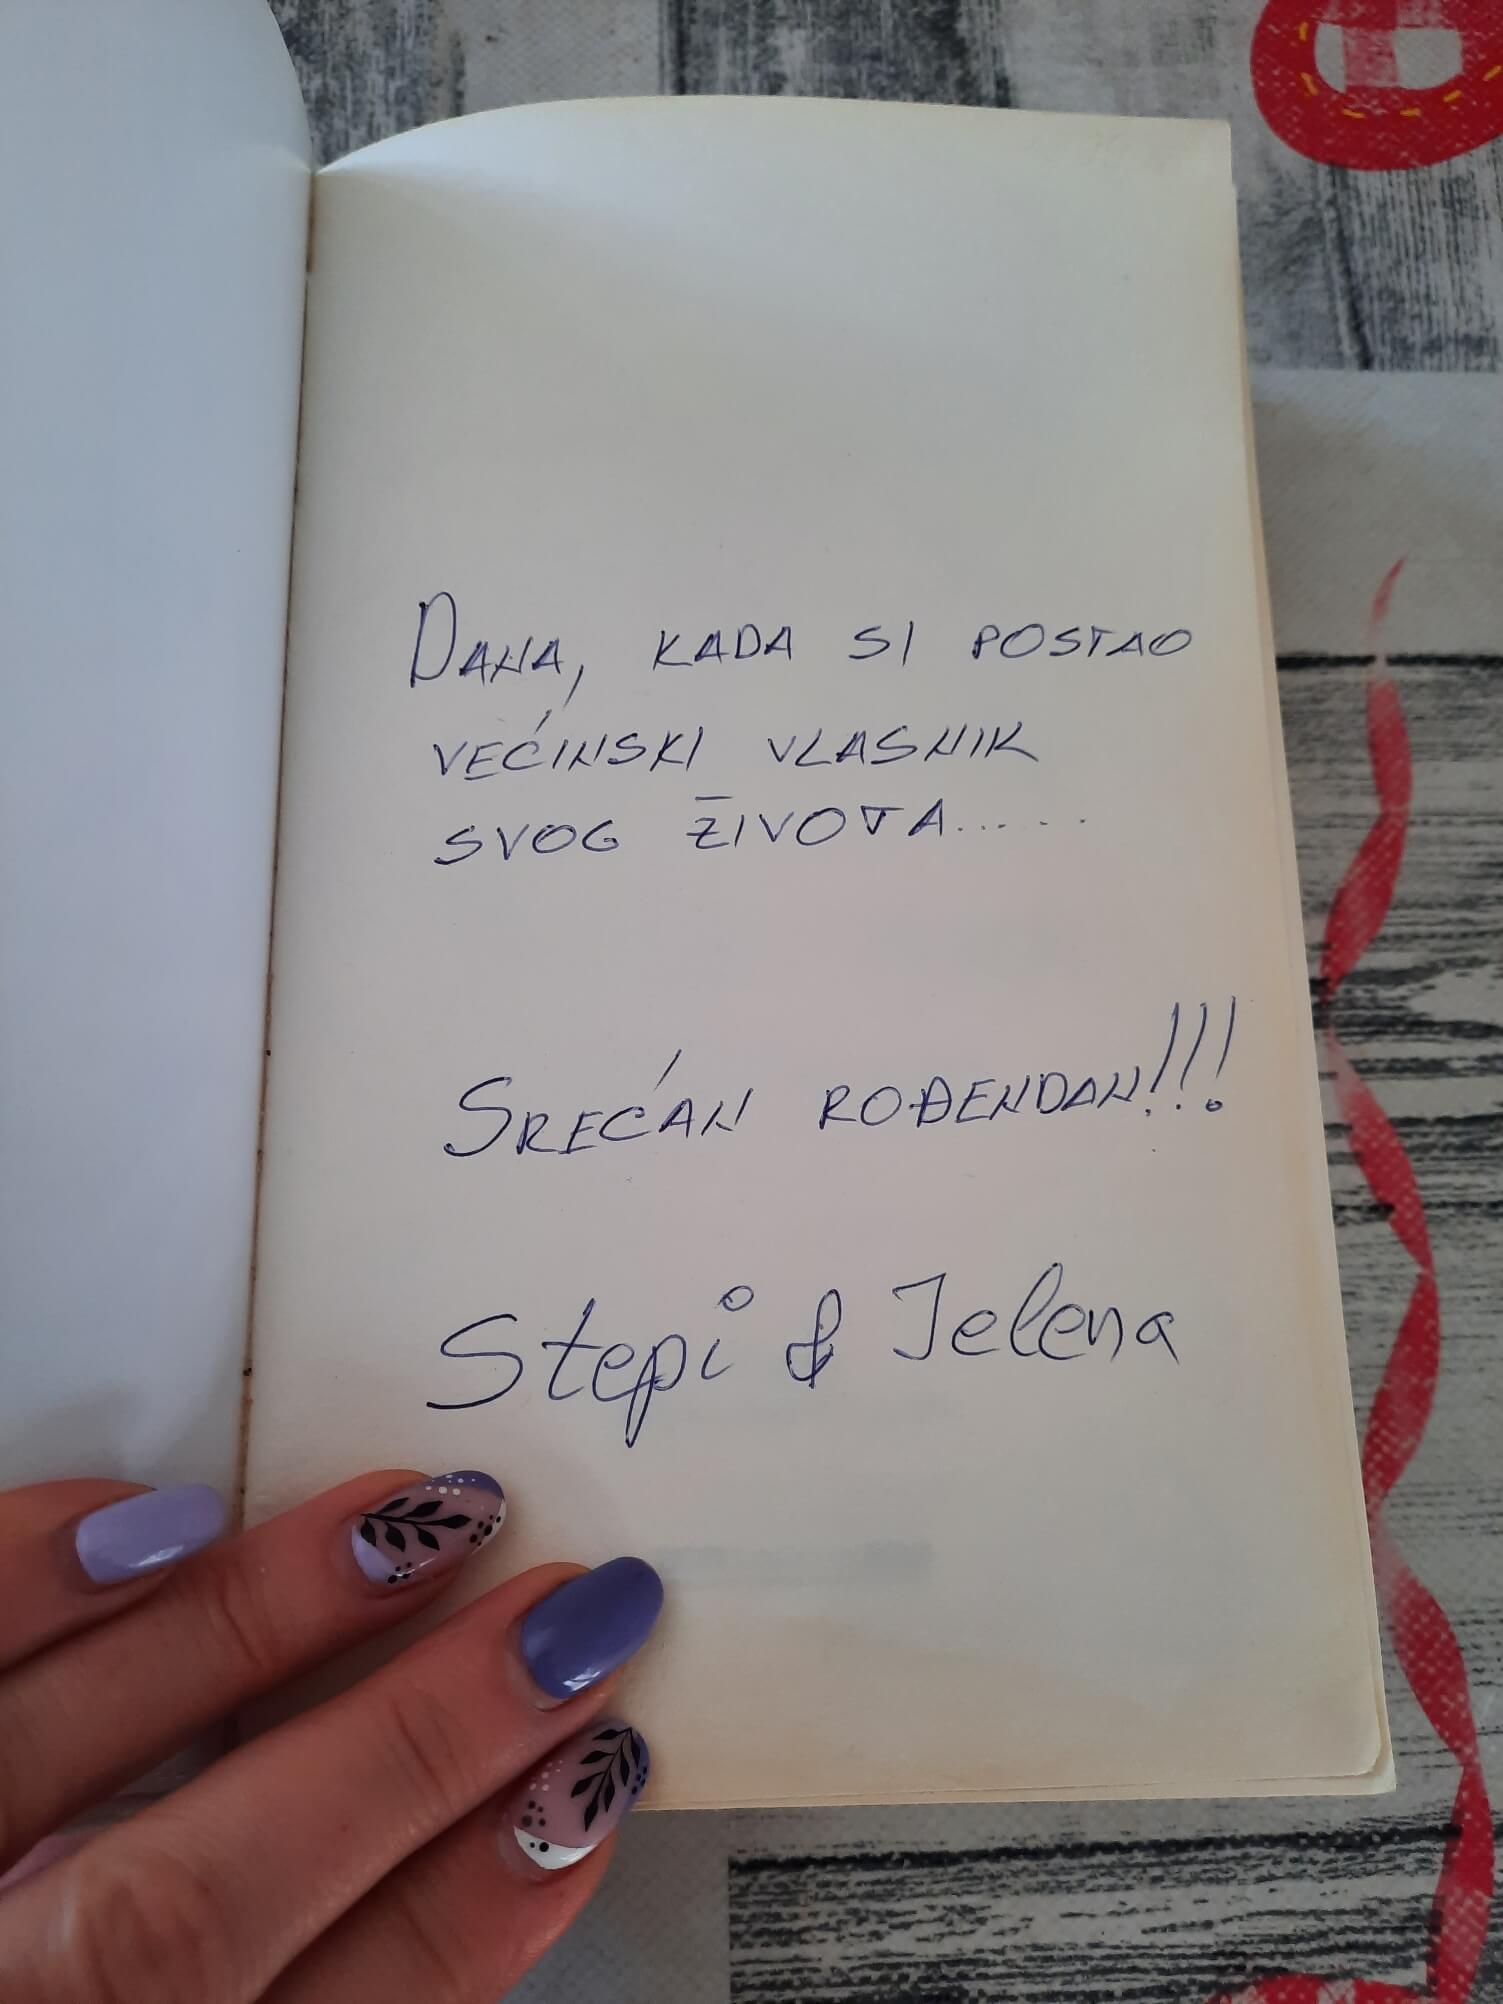 DANA, KADA SI POSTAO
VEĆINSKI VLASNIK
SVOG ŽIVOTA.....
SREĆAN ROĐENDAN!!!
Stepi & Jelena